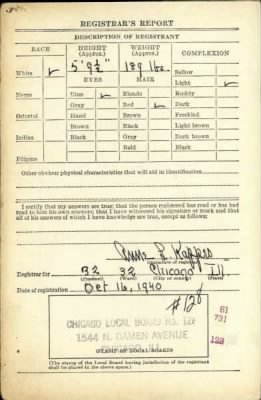 REGISTRAR'S REPORT
DESCRIPTION OF REGISTRANT
RACE HEIGHT (Approx.) WEIGHT (Approx.) COMPLEXION
White ✓ 5' 9½" 189 lbs. Sallow
EYES HAIR Light ✓
Negro Blue ✓ Blonde Ruddy
Gray Red ✓ Dark
Oriental Hazel Brown Freckled
Brown Black Light brown
Indian Black Gray Dark brown
Bald Black
Filipino
Other obvious physical characteristics that will aid in identification
I certify that my answers are true; that the person registered has read or has had
read to him his own answers; that I have witnessed his signature or mark and that
all of his answers of which I have knowledge are true, except as follows:
(Signature of registrar)
Registrar for 32 32 Chicago Ill.
(Precinct) (Ward) (City or county) (State)
Date of registration Oct 16, 1940
#128
61
731
128
CHICAGO LOCAL BOARD NO. 128
1544 N. DAMEN AVENUE
CHICAGO, ILL.
STAMP OF LOCAL BOARD
(The stamp of the Local Board having jurisdiction of the registrant
shall be placed in the above space.)